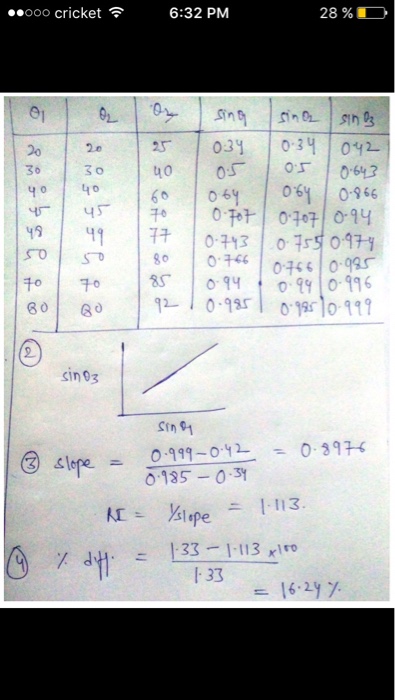 cricket 6:32 PM 28 %
θ1 θ2 θ3 sinθ1 sinθ2 sinθ3
20 20 25 0.34 0.34 0.42
30 30 40 0.5 0.5 0.643
40 40 60 0.64 0.64 0.866
45 45 70 0.707 0.707 0.94
48 49 77 0.743 0.755 0.974
50 50 80 0.766 0.766 0.985
70 70 85 0.94 0.94 0.996
80 80 92 0.985 0.985 0.999
②
sinθ3
sinθ1
③ slope = 0.999-0.42 / 0.985-0.34 = 0.8976
RI = 1/slope = 1.113.
④ % diff. = 1.33-1.113 / 1.33 ×100
= 16.24 %.